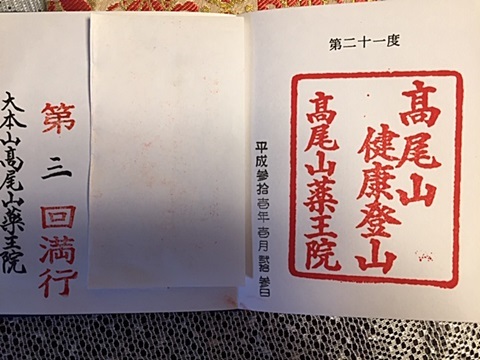 第二十一度
髙尾山
健康登山
髙尾山薬王院
平成参拾壱年壱月弐拾参日
第三回満行
大本山髙尾山薬王院